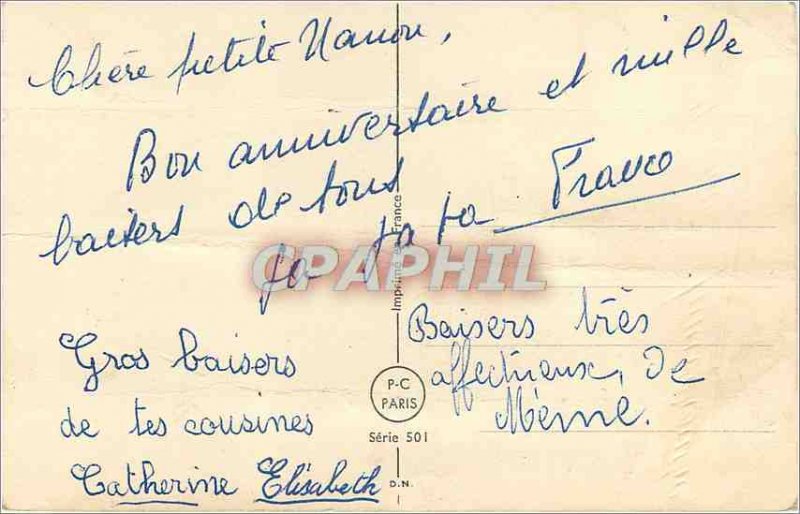 Chère petite Nanou,
Bon anniversaire et mille
baisers de tous
ta tata France
CPAPHIL
Imprimé en France
Gros baisers
de tes cousines
Catherine Elisabeth
Baisers très
affectueux, de
Mémé.
P-C
PARIS
Série 501
D.N.